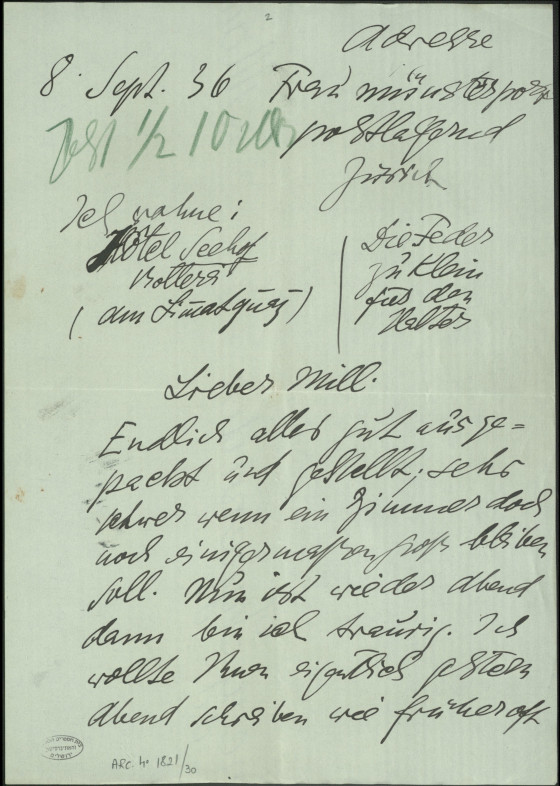 2
Adresse
8. Sept. 36 Fraumünsterpost
postlagernd
Zürich
Jetzt 1/2 10 Uhr
Ich wohne:
Hotel Seehof
Bollerei
(am Limatquai)
Die Feder
zu klein
für den
Halter
Lieber Mill.
Endlich alles gut ausge=
packt und gestellt; sehr
schwer wenn ein Zimmer doch
noch einigermaßen groß bleiben
soll. Nun ist wieder Abend
dann bin ich traurig. Ich
wollte Ihnen eigentlich gestern
Abend schreiben wie früher oft
ARC. 4° 1821/30